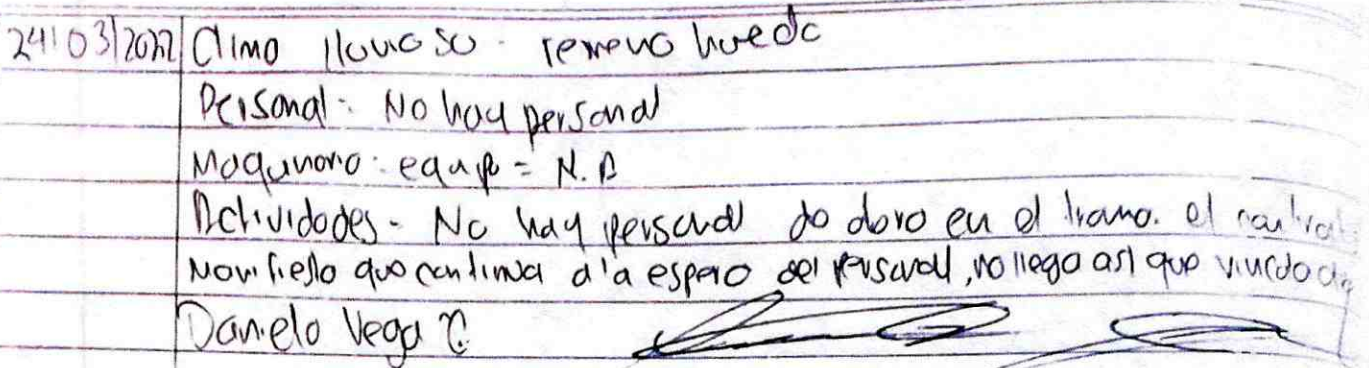 24/03/2022 Clima lluvioso - terreno huedo
Personal - No hay personal
Maquinaria - equipo = N.A
Actividades - No hay personal do obra en el tramo. el
Manifiesto que continua a la espera del personal, no llego asi que
Daniela Vega C.